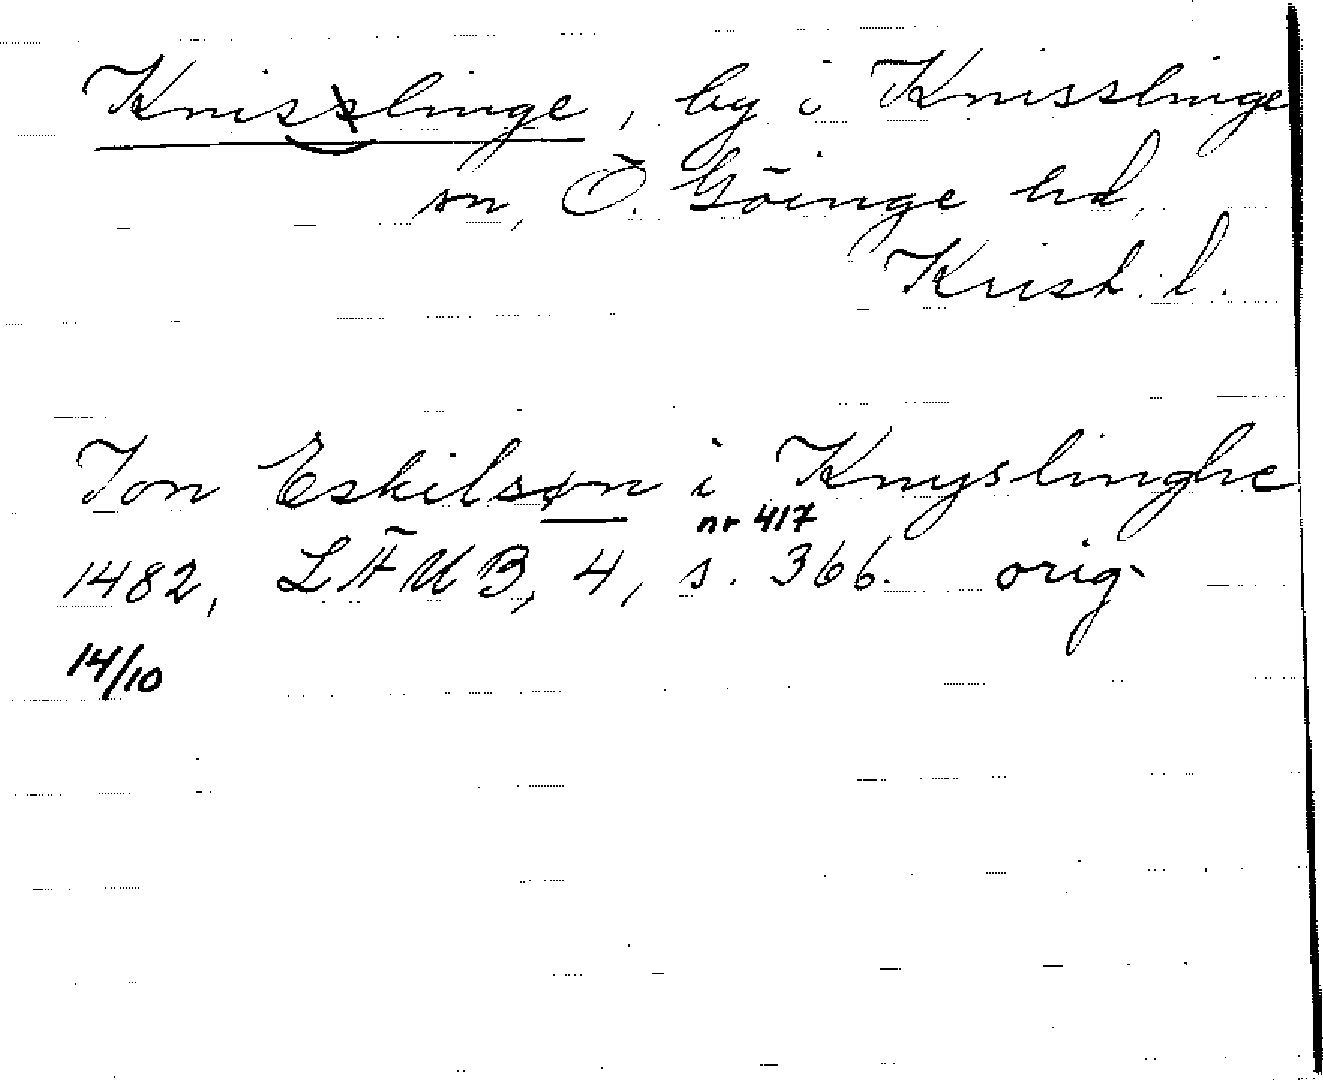 Knisslinge, by i Knisslinge
sn, Ö. Göinge hd,
Krist. l.
Jon Eskilsøn i Knyslinghe
nr 417
1482, LÄUB, 4, s. 366. orig.
14/10